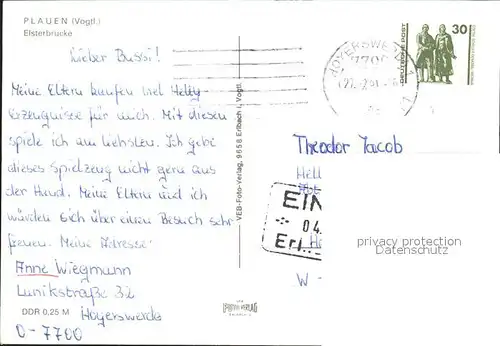 PLAUEN (Vogtl.)
Elsterbrücke
Lieber Bussi!
Meine Eltern kaufen viel Helly-
erzeugnisse für mich. Mit diesen
spiele ich am liebsten. Ich gebe
dieses Spielzeug nicht gern aus
der Hand. Meine Eltern und ich
würden sich über einen Besuch sehr
freuen. Meine Adresse:
Anne Wiegmann
Lunikstraße 32
Hoyerswerda
O-7700
DDR 0,25 M
VEB-Foto-Verlag, 9658 Erlbach i. Vogtl.
HOYERSWERDA 1
7700
DEUTSCHE POST
30
Theodor Jacob
Hell
EIN
04.
Erl.
W -
privacy protection
Datenschutz